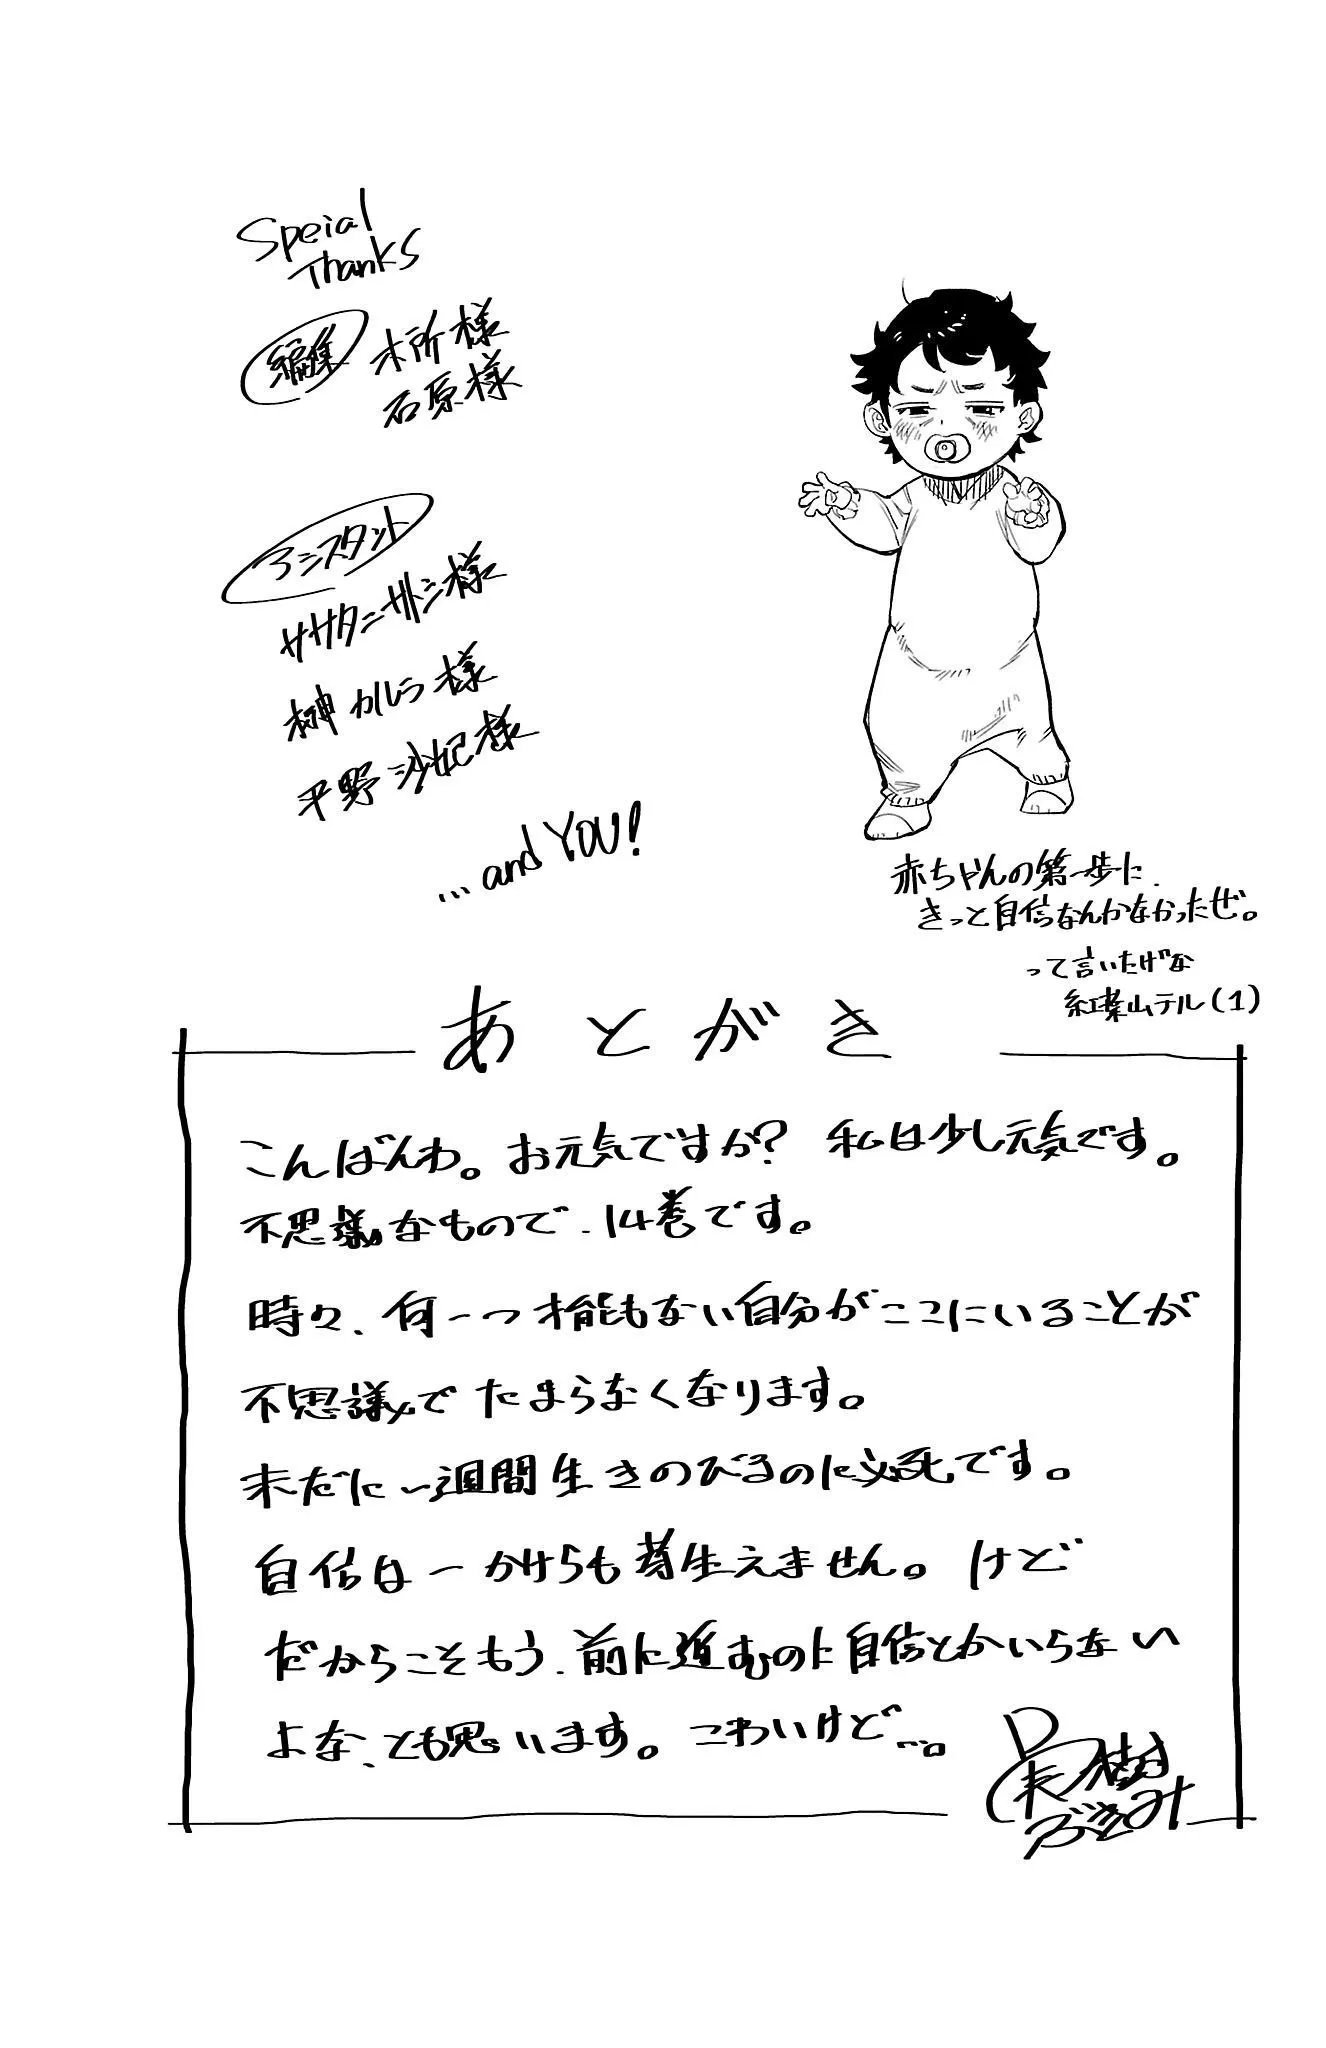 Speial
Thanks
編集 木所様
石原様
アシスタント
ササタニサトシ様
榊カルラ様
平野沙妃様
…and YOU!
赤ちゃんの第一歩に、
きっと自信なんかなかったぜ。
って言いたげな
紅葉山テル(1)
あとがき
こんばんわ。お元気ですか? 私は少し元気です。
不思議なもので、14巻です。
時々、何一つ才能もない自分がここにいることが
不思議でたまらなくなります。
未だに一週間生きのびるのに必死です。
自信は一かけらも芽生えません。けど
だからこそもう、前に進むのに自信とかいらない
よな、とも思います。こわいけど…。
実樹
ぶきみ